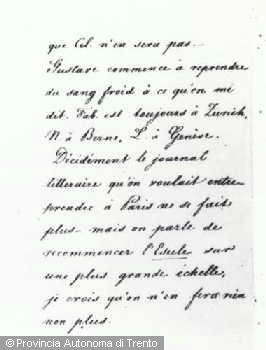 que Cel. n'en sera pas...
Gustave commence à reprendre
du sang froid à ce qu'on me
dit. Fab. est toujours à Zurich,
N à Berne, L' à Genise.
Décidément le journal
litteraire qu'on voulait entre
prendre à Paris ne se fait
plus mais on parle de
recommencer l'Esule sur
une plus grande échelle,
je crois qu'on n'en fera rien
non plus.
© Provincia Autonoma di Trento